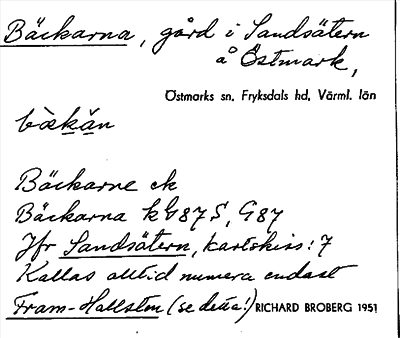 Bäckarna, gård i Sandsätern
å Östmark,
Östmarks sn, Fryksdals hd, Värml. län
bæ̀kăn
Bäckarne ek
Bäckarna kG87S, G87
Jfr Sandsätern, kartskiss: 7
Kallas alltid numera endast
Fram-Hallsten (se detta!) RICHARD BROBERG 1951